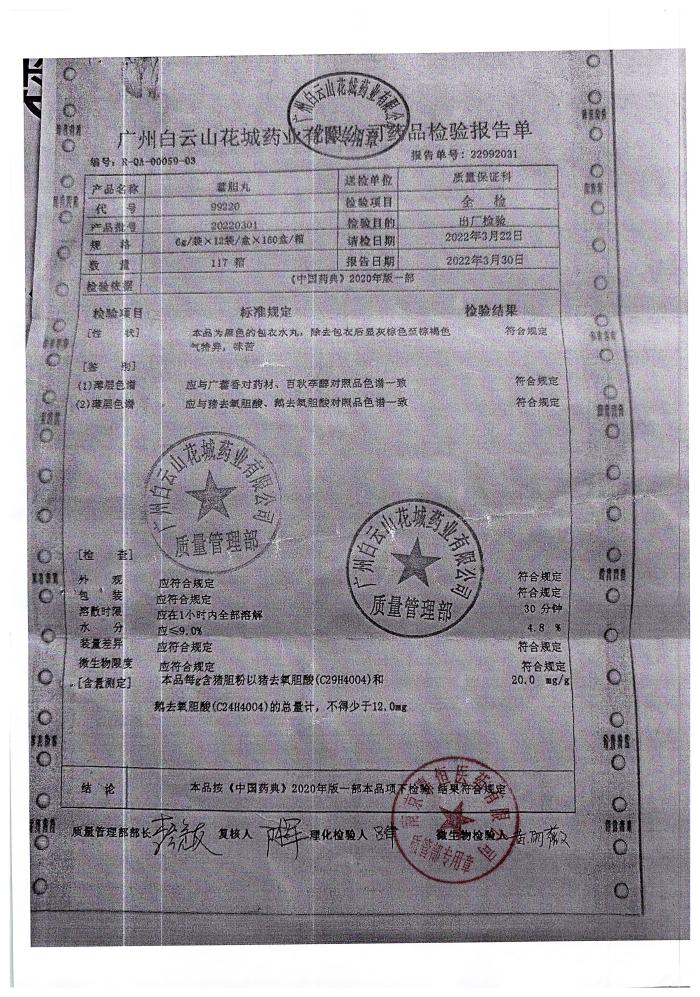 广州白云山花城药业有限公司药品检验报告单
编号：R-QA-00059-03 报告单号：22992031
产品名称 藿胆丸 送检单位 质量保证科
代 号 99220 检验项目 全 检
产品批号 20220301 检验目的 出厂检验
规 格 6g/袋×12袋/盒×160盒/箱 请检日期 2022年3月22日
数 量 117 箱 报告日期 2022年3月30日
检验依据 《中国药典》2020年版一部
检验项目 标准规定 检验结果
[性 状] 本品为黑色的包衣水丸，除去包衣后显灰棕色至棕褐色 符合规定
气特异，味苦
[鉴 别]
(1)薄层色谱 应与广藿香对药材、百秋李醇对照品色谱一致 符合规定
(2)薄层色谱 应与猪去氧胆酸、鹅去氧胆酸对照品色谱一致 符合规定
广州白云山花城药业有限公司
质量管理部
广州白云山花城药业有限公司
质量管理部
[检 查]
外 观 应符合规定 符合规定
包 装 应符合规定 符合规定
溶散时限 应在1小时内全部溶解 30 分钟
水 分 应≤9.0% 4.8 %
装量差异 应符合规定 符合规定
微生物限度 应符合规定 符合规定
[含量测定] 本品每g含猪胆粉以猪去氧胆酸(C29H4004)和 20.0 mg/g
鹅去氧胆酸(C24H4004)的总量计，不得少于12.0mg
结 论 本品按《中国药典》2020年版一部本品项下检验 结果符合规定
质量管理部部长 复核人 理化检验人 微生物检验人
质管部专用章